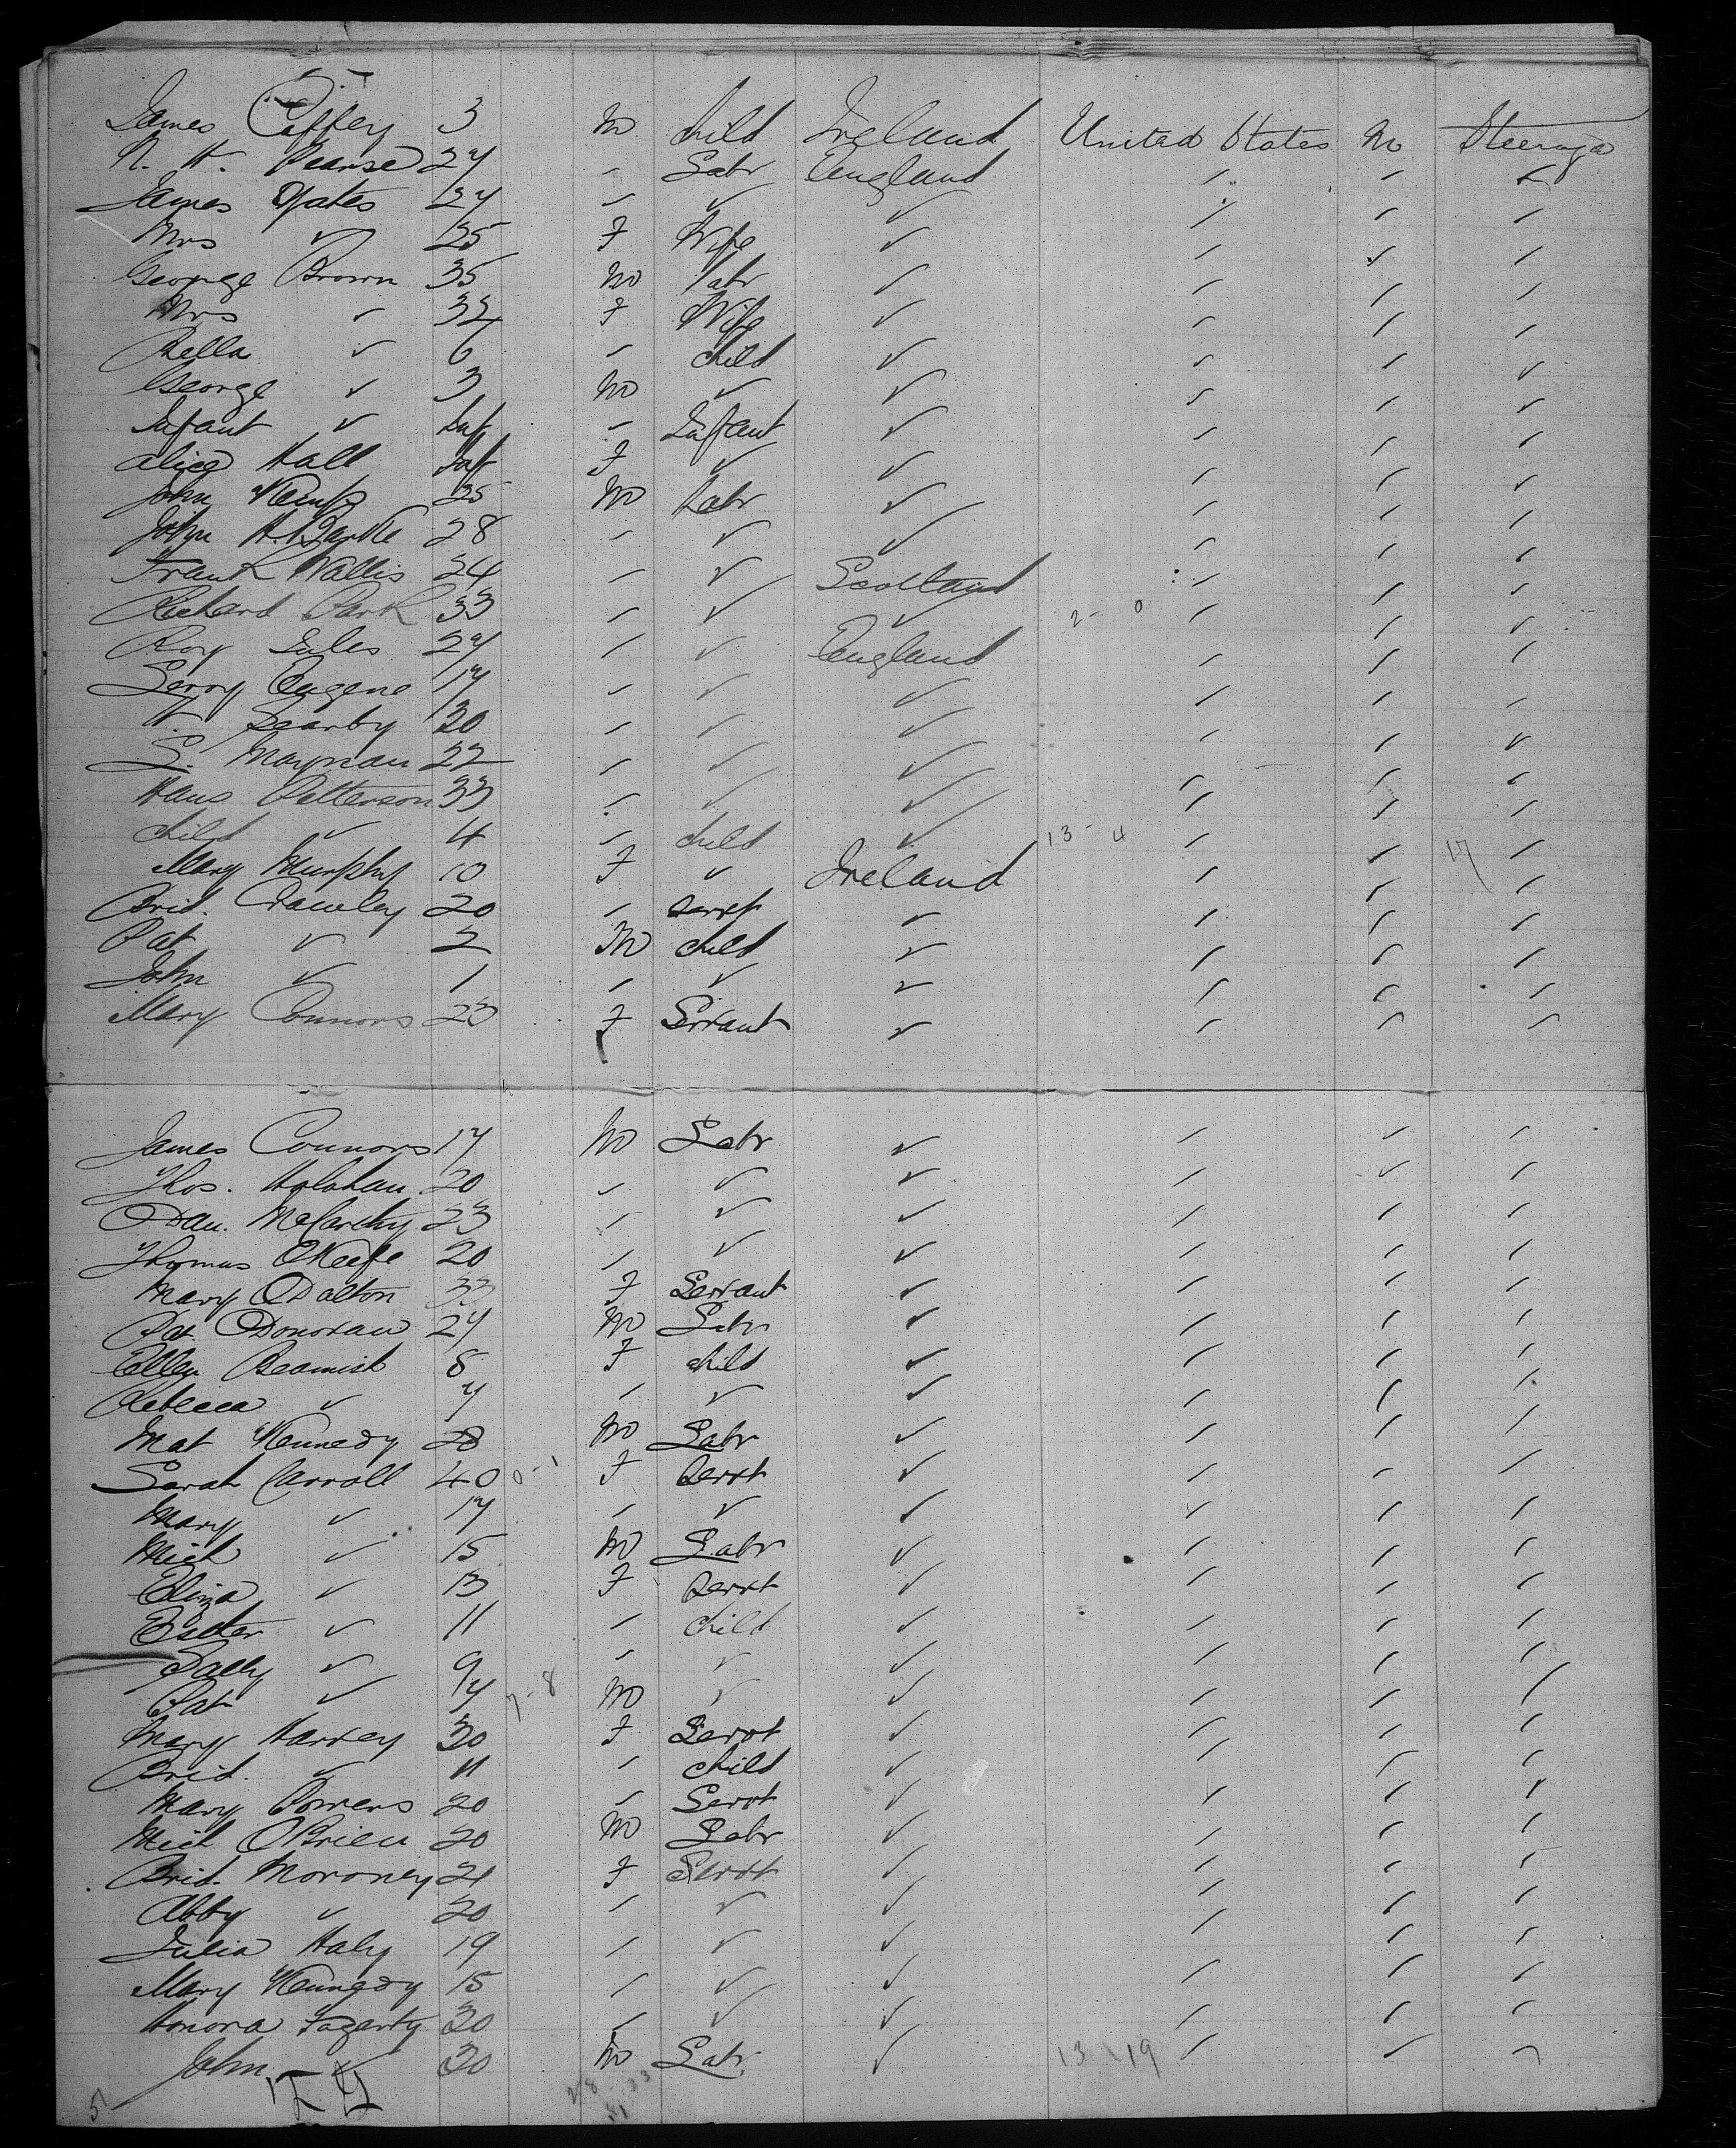 James Caffey 3 M child Ireland United States No Steerage
N. H. Pearse 27 " Labr England " " "
James Yates 27 " " " " " "
Mrs " 25 F Wife " " " "
George Brown 35 M Labr " " " "
Mrs " 32 F Wife " " " "
Bella " 6 " child " " " "
George " 3 M " " " " "
Infant " Inf " Infant " " " "
Alice Hall Inf F " " " " "
John Kemp 25 M Labr " " " "
John H. 28 " " " " " "
Frank Wallis 24 " " Scotland " " "
Richard Park 33 " " " 2 - 0 " " "
Roy Jules 27 " " England " " "
Leroy Eugene 17 " " " " " "
H. Searby 30 " " " " " "
S. Maynau 22 " " " " " "
Hans Patterson 33 " " " " " "
child " 4 " child " 13 - 4 " " 17 "
Mary Murphy 10 F " Ireland " " "
Brid. Crowley 20 " servt " " " "
Pat " 2 M child " " " "
John " 1 " " " " " "
Mary Connors 23 F Servant " " " "
James Connors 17 M Labr " " " "
Thos. Holohan 20 " " " " " "
Dan. McCarthy 23 " " " " " "
Thomas OKeefe 20 " " " " " "
Mary Dalton 33 F Servant " " " "
Pat Donovan 27 M Labr " " " "
Ellen Beamish 8 F child " " " "
Rebecca " 7 " " " " " "
Mat Kennedy 28 M Labr " " " "
Sarah Carroll 40 0 - 1 F Servt " " " "
Mary " 17 " " " " " "
Mich " 15 M Labr " " " "
Eliza " 13 F Servt " " " "
Esther " 11 " child " " " "
Sally " 9 " " " " " "
Pat " 7 7 - 8 M " " " " "
Mary Harvey 30 F Servt " " " "
Brid. " 11 " child " " " "
Mary Powers 20 " Servt " " " "
Mich OBrien 20 M Labr " " " "
Brid. Moroney 21 F Servt " " " "
Abby " 20 " " " " " "
Julia Haly 19 " " " " " "
Mary Kennedy 15 " " " " " "
Honora Fogarty 30 " " " " " "
John " 30 M Labr " 13 19 " " "
51 28 23
51